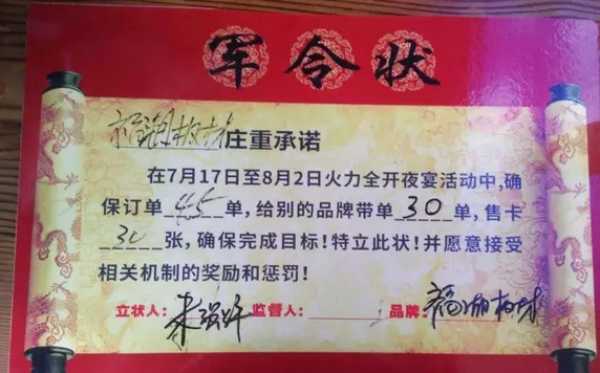 军令状
福湘板材庄重承诺
在7月17日至8月2日火力全开夜宴活动中,确
保订单45单,给别的品牌带单30单,售卡
30张,确保完成目标!特立此状!并愿意接受
相关机制的奖励和惩罚!
立状人: 监督人: 品牌 福湘板材